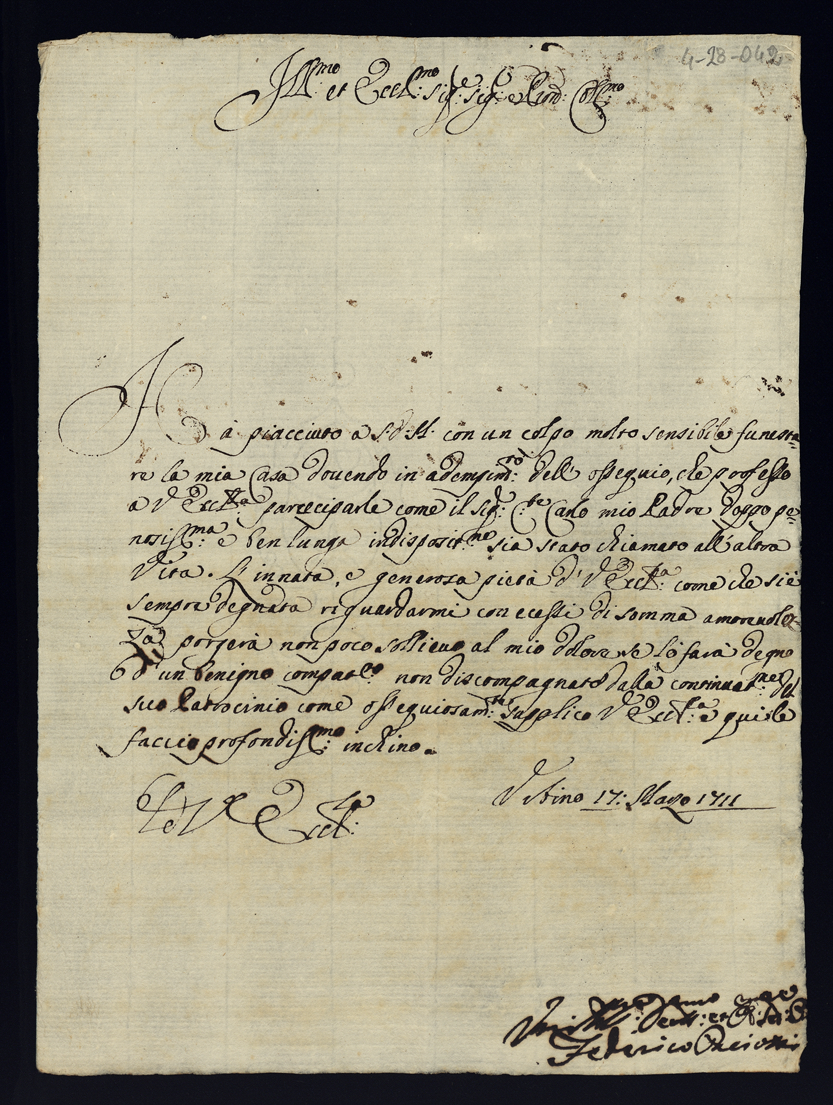 4-28-042
Ill:mo et Ecc:mo Sig:e Sig:e e Pron: Col:mo
Hà piacciuto a S:D:M: con un colpo molto sensibile funesta=
re la mia Casa dovendo in adempim:to dell'osseguio, che professo
a V Ecc:za parteciparle come il Sig: C:te Carlo mio Padre doppo pe=
nosiss:ma e ben lunga indisposit:ne sia stato chiamato all'altra
Vita. L'innata, e generosa pietà d'V Ecc:za come che si è
sempre degnata riguardarmi con ecessi di somma amorevolez=
za, porgerà non poco sollievo al mio dolore se lo farà degno
d'un benigno compat:to non discompagnato dalla continuat:ne del
suo Patrocinio come osseguiosam:te supplico V Ecc:za e qui le
faccio profondiss:mo inchino.
Di V Ecc:za
Urbino 17: Marzo 1711
Federico